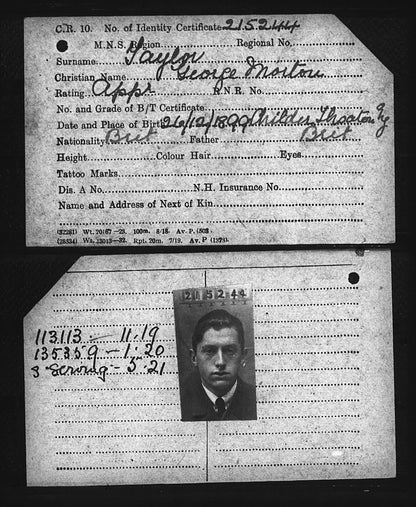 C.R. 10. No. of Identity Certificate 215244
M.N.S. Region Regional No.
Surname Taylor
Christian Name George Morton
Rating Appr R.N.R. No.
No. and Grade of B/T Certificate
Date and Place of Birth 26/12/1899 Childer Thornton
Nationality Brit Father Brit
Height Colour Hair Eyes
Tattoo Marks
Dis. A No. N.H. Insurance No.
Name and Address of Next of Kin
Wt. 20m. 7/19. Av. P
215244
113113 — 11.19
135359 — 1.20
Serving - 5.21